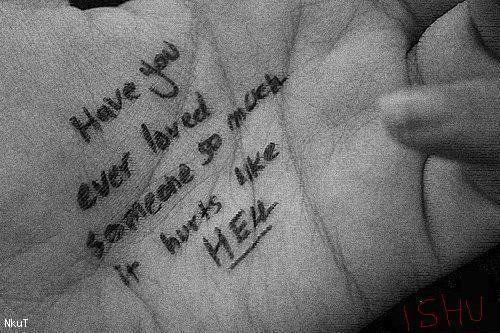 Have you
ever loved
someone so much
it hurts like
HELL
NkuT
ISHU